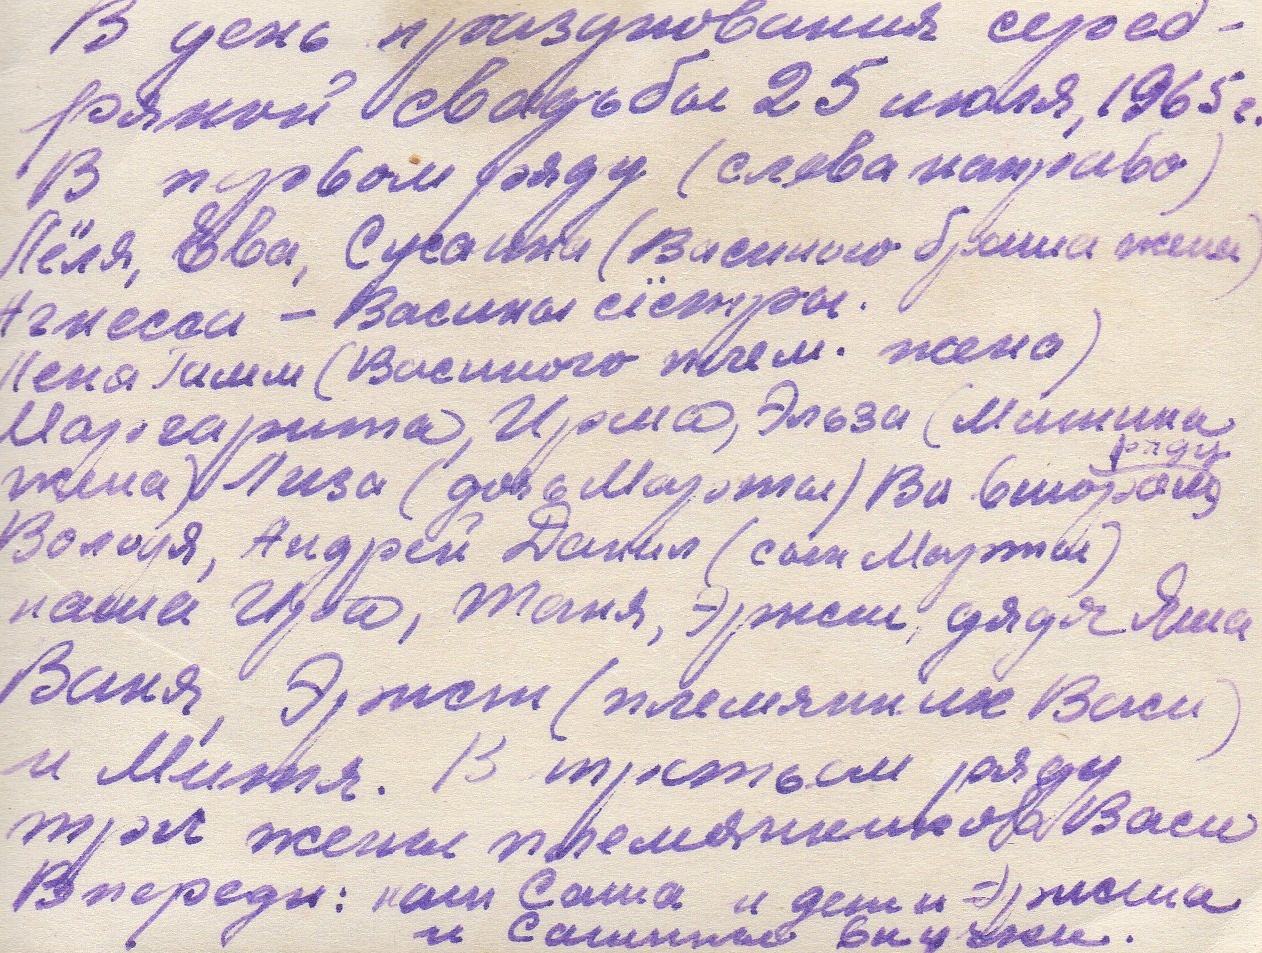 В день празднования сереб-
ряной свадьбы 25 июля, 1965 г.
В первом ряду (слева направо)
Лёля, Ева, Сусанна (Васиного брата жена)
Агнесса – Васины сёстры.
Лена Тимм (Васиного плем. жена)
Маргарита, Ирма, Эльза (Митина
жена) Лиза (дочь Марты) Во втором ряду
Володя, Андрей Данил (сын Марты)
наша Ира, Таня, Эрнст, дядя Яша
Ваня, Эрнст (племянник Васи)
и Митя. В третьем ряду
три жены племянников Васи
Впереди: наш Саша и дети Эрнста
и Сашины внучки.